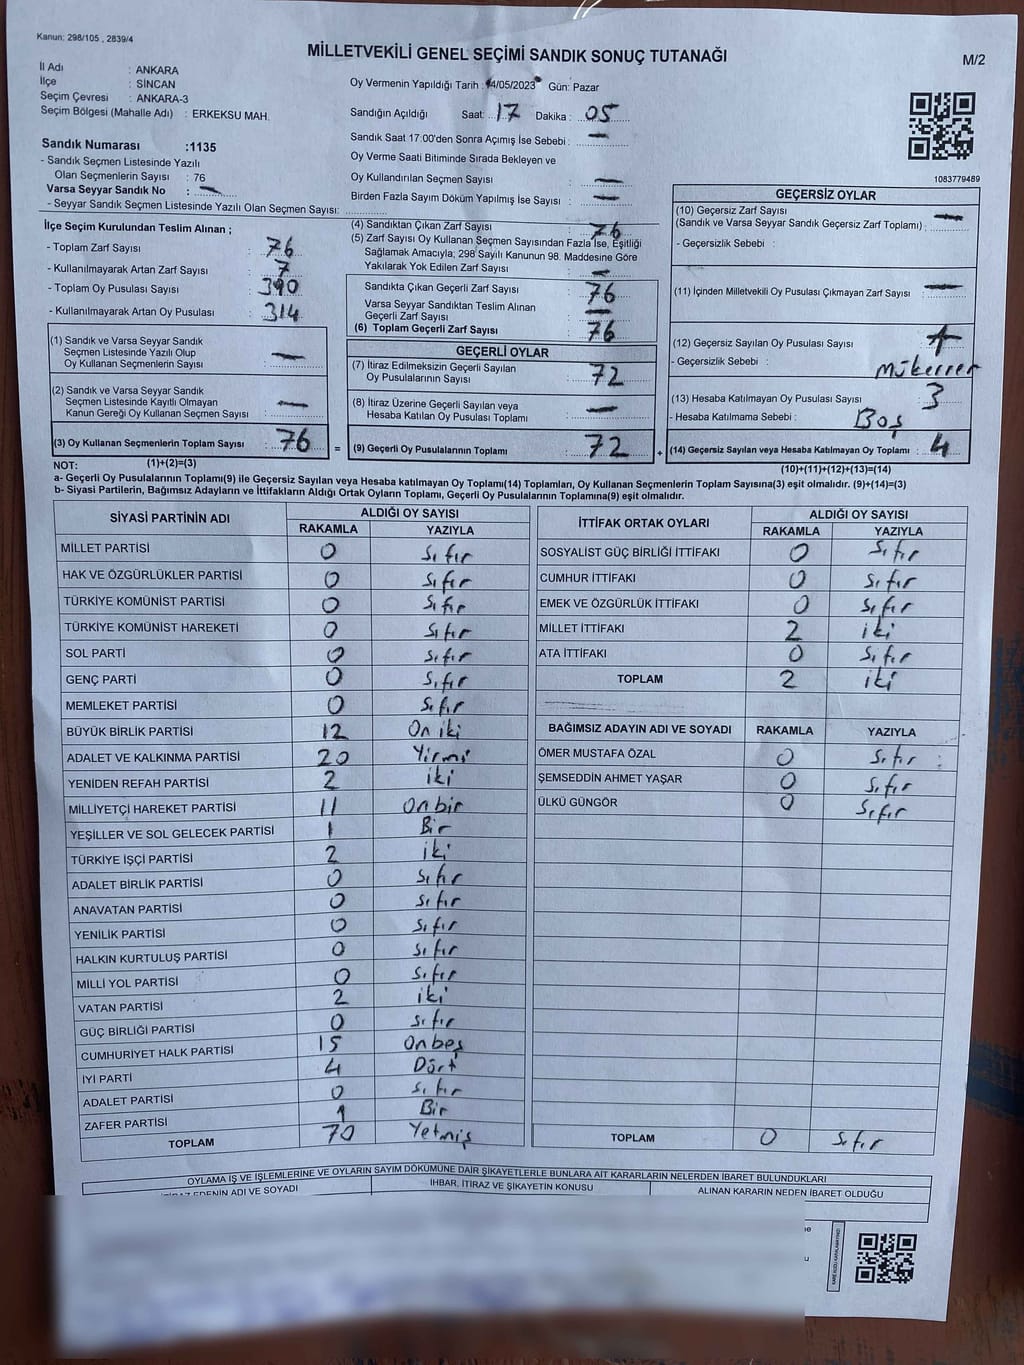 Kanun: 298/105 , 2839/4
MİLLETVEKİLİ GENEL SEÇİMİ SANDIK SONUÇ TUTANAĞI
M/2
İl Adı : ANKARA
İlçe : SİNCAN
Seçim Çevresi : ANKARA-3
Seçim Bölgesi (Mahalle Adı) : ERKEKSU MAH.
Oy Vermenin Yapıldığı Tarih : 14/05/2023 Gün: Pazar
Sandığın Açıldığı Saat: 17 Dakika : 05
Sandık Saat 17:00'den Sonra Açımış İse Sebebi : —
Oy Verme Saati Bitiminde Sırada Bekleyen ve
Oy Kullandırılan Seçmen Sayısı : —
Birden Fazla Sayım Döküm Yapılmış İse Sayısı : —
1083779489
Sandık Numarası :1135
- Sandık Seçmen Listesinde Yazılı
Olan Seçmenlerin Sayısı : 76
Varsa Seyyar Sandık No : —
- Seyyar Sandık Seçmen Listesinde Yazılı Olan Seçmen Sayısı:
İlçe Seçim Kurulundan Teslim Alınan ;
- Toplam Zarf Sayısı : 76
- Kullanılmayarak Artan Zarf Sayısı : 7
- Toplam Oy Pusulası Sayısı : 390
- Kullanılmayarak Artan Oy Pusulası : 314
(1) Sandık ve Varsa Seyyar Sandık
Seçmen Listesinde Yazılı Olup
Oy Kullanan Seçmenlerin Sayısı : —
(2) Sandık ve Varsa Seyyar Sandık
Seçmen Listesinde Kayıtlı Olmayan
Kanun Gereği Oy Kullanan Seçmen Sayısı : —
(3) Oy Kullanan Seçmenlerin Toplam Sayısı : 76 =
(4) Sandıktan Çıkan Zarf Sayısı : 76
(5) Zarf Sayısı Oy Kullanan Seçmen Sayısından Fazla İse, Eşitliği
Sağlamak Amacıyla; 298 Sayılı Kanunun 98. Maddesine Göre
Yakılarak Yok Edilen Zarf Sayısı : —
Sandıkta Çıkan Geçerli Zarf Sayısı : 76
Varsa Seyyar Sandıktan Teslim Alınan
Geçerli Zarf Sayısı : —
(6) Toplam Geçerli Zarf Sayısı : 76
GEÇERLİ OYLAR
(7) İtiraz Edilmeksizin Geçerli Sayılan
Oy Pusulalarının Sayısı : 72
(8) İtiraz Üzerine Geçerli Sayılan veya
Hesaba Katılan Oy Pusulaları Toplamı : —
(9) Geçerli Oy Pusulalarının Toplamı : 72 +
GEÇERSİZ OYLAR
(10) Geçersiz Zarf Sayısı
(Sandık ve Varsa Seyyar Sandık Geçersiz Zarf Toplamı) : —
- Geçersizlik Sebebi :
(11) İçinden Milletvekili Oy Pusulası Çıkmayan Zarf Sayısı : —
(12) Geçersiz Sayılan Oy Pusulası Sayısı :
- Geçersizlik Sebebi : Mükerrer
(13) Hesaba Katılmayan Oy Pusulası Sayısı : 3
- Hesaba Katılmama Sebebi : Boş
(14) Geçersiz Sayılan veya Hesaba Katılmayan Oy Toplamı : 4
NOT: (1)+(2)=(3)
(10)+(11)+(12)+(13)=(14)
a- Geçerli Oy Pusulaları Toplamı(9) ile Geçersiz Sayılan veya Hesaba katılmayan Oy Toplamı(14) Toplamları, Oy Kullanan Seçmenlerin Toplam Sayısına(3) eşit olmalıdır. (9)+(14)=(3)
b- Siyasi Partilerin, Bağımsız Adayların ve İttifakların Aldığı Ortak Oyların Toplamı, Geçerli Oy Pusulalarının Toplamına(9) eşit olmalıdır.
SİYASİ PARTİNİN ADI ALDIĞI OY SAYISI
RAKAMLA YAZIYLA
MİLLET PARTİSİ 0 Sıfır
HAK VE ÖZGÜRLÜKLER PARTİSİ 0 Sıfır
TÜRKİYE KOMÜNİST PARTİSİ 0 Sıfır
TÜRKİYE KOMÜNİST HAREKETİ 0 Sıfır
SOL PARTİ 0 Sıfır
GENÇ PARTİ 0 Sıfır
MEMLEKET PARTİSİ 0 Sıfır
BÜYÜK BİRLİK PARTİSİ 12 On iki
ADALET VE KALKINMA PARTİSİ 20 Yirmi
YENİDEN REFAH PARTİSİ 2 iki
MİLLİYETÇİ HAREKET PARTİSİ 11 Onbir
YEŞİLLER VE SOL GELECEK PARTİSİ 1 Bir
TÜRKİYE İŞÇİ PARTİSİ 2 iki
ADALET BİRLİK PARTİSİ 0 Sıfır
ANAVATAN PARTİSİ 0 Sıfır
YENİLİK PARTİSİ 0 Sıfır
HALKIN KURTULUŞ PARTİSİ 0 Sıfır
MİLLİ YOL PARTİSİ 0 Sıfır
VATAN PARTİSİ 2 iki
GÜÇ BİRLİĞİ PARTİSİ 0 Sıfır
CUMHURİYET HALK PARTİSİ 15 Onbeş
İYİ PARTİ 4 Dört
ADALET PARTİSİ 0 Sıfır
ZAFER PARTİSİ 1 Bir
TOPLAM 70 Yetmiş
İTTİFAK ORTAK OYLARI ALDIĞI OY SAYISI
RAKAMLA YAZIYLA
SOSYALİST GÜÇ BİRLİĞİ İTTİFAKI 0 Sıfır
CUMHUR İTTİFAKI 0 Sıfır
EMEK VE ÖZGÜRLÜK İTTİFAKI 0 Sıfır
MİLLET İTTİFAKI 2 iki
ATA İTTİFAKI 0 Sıfır
TOPLAM 2 iki
BAĞIMSIZ ADAYIN ADI VE SOYADI RAKAMLA YAZIYLA
ÖMER MUSTAFA ÖZAL 0 Sıfır
ŞEMSEDDİN AHMET YAŞAR 0 Sıfır
ÜLKÜ GÜNGÖR 0 Sıfır
TOPLAM 0 Sıfır
OYLAMA İŞ VE İŞLEMLERİNE VE OYLARIN SAYIM DÖKÜMÜNE DAİR ŞİKAYETLERLE BUNLARA AİT KARARLARIN NELERDEN İBARET BULUNDUKLARI
İTİRAZ EDENİN ADI VE SOYADI İHBAR, İTİRAZ VE ŞİKAYETİN KONUSU ALINAN KARARIN NEDEN İBARET OLDUĞU